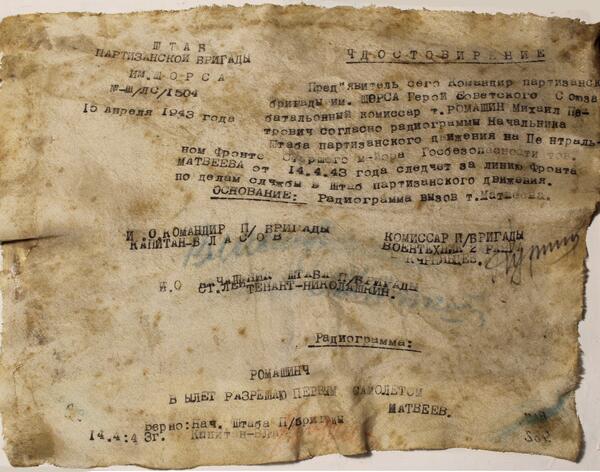 ШТАБ
ПАРТИЗАНСКОЙ БРИГАДЫ
ИМ.ЩОРСА
№-Ш/ЛС/1504
15 апреля 1943 года
ЧДОСТОВИРЕНИЕ
Пред"явитель сего Командир партизанск
бригады им. ЩОРСА Герой Советского Союза
батальонный комиссар т.РОМАШИН Михаил Пе-
трович согласно радиограммы Начальника
Штаба партизанского движения на Централь-
ном Фронте Старшего м-йора Госбезопасности тов.
МАТВЕЕВА от 14.4.43 года следчет за линию Фронта
по делам слчжбы в Штаб партизанского движения.
ОСНОВАНИЕ: Радиограмма вызов т.Матвеева.
И О КОМАНДИР П/ БРИГАДЫ
КАПИТАН-В Л А С О В
КОМИССАР П/БРИГАДЫ
ВОЕНТЕХНИК 2 РАНГА
КЧРПЦЕВ.
И.О НАЧАЛЬНИК ШТАБА П/БРИГАДЫ
СТ.ЛЕЙТЕНАНТ-НИКОЛАШКИН.
Радиограмма:
РОМАШИНЧ
ВЫЛЕТ РАЗРЕШАЮ ПЕРВЫМ САМОЛЕТОМ
МАТВЕЕВ.
верно:Нач. Штаба П/бригады
14.4:43г. Капитан-